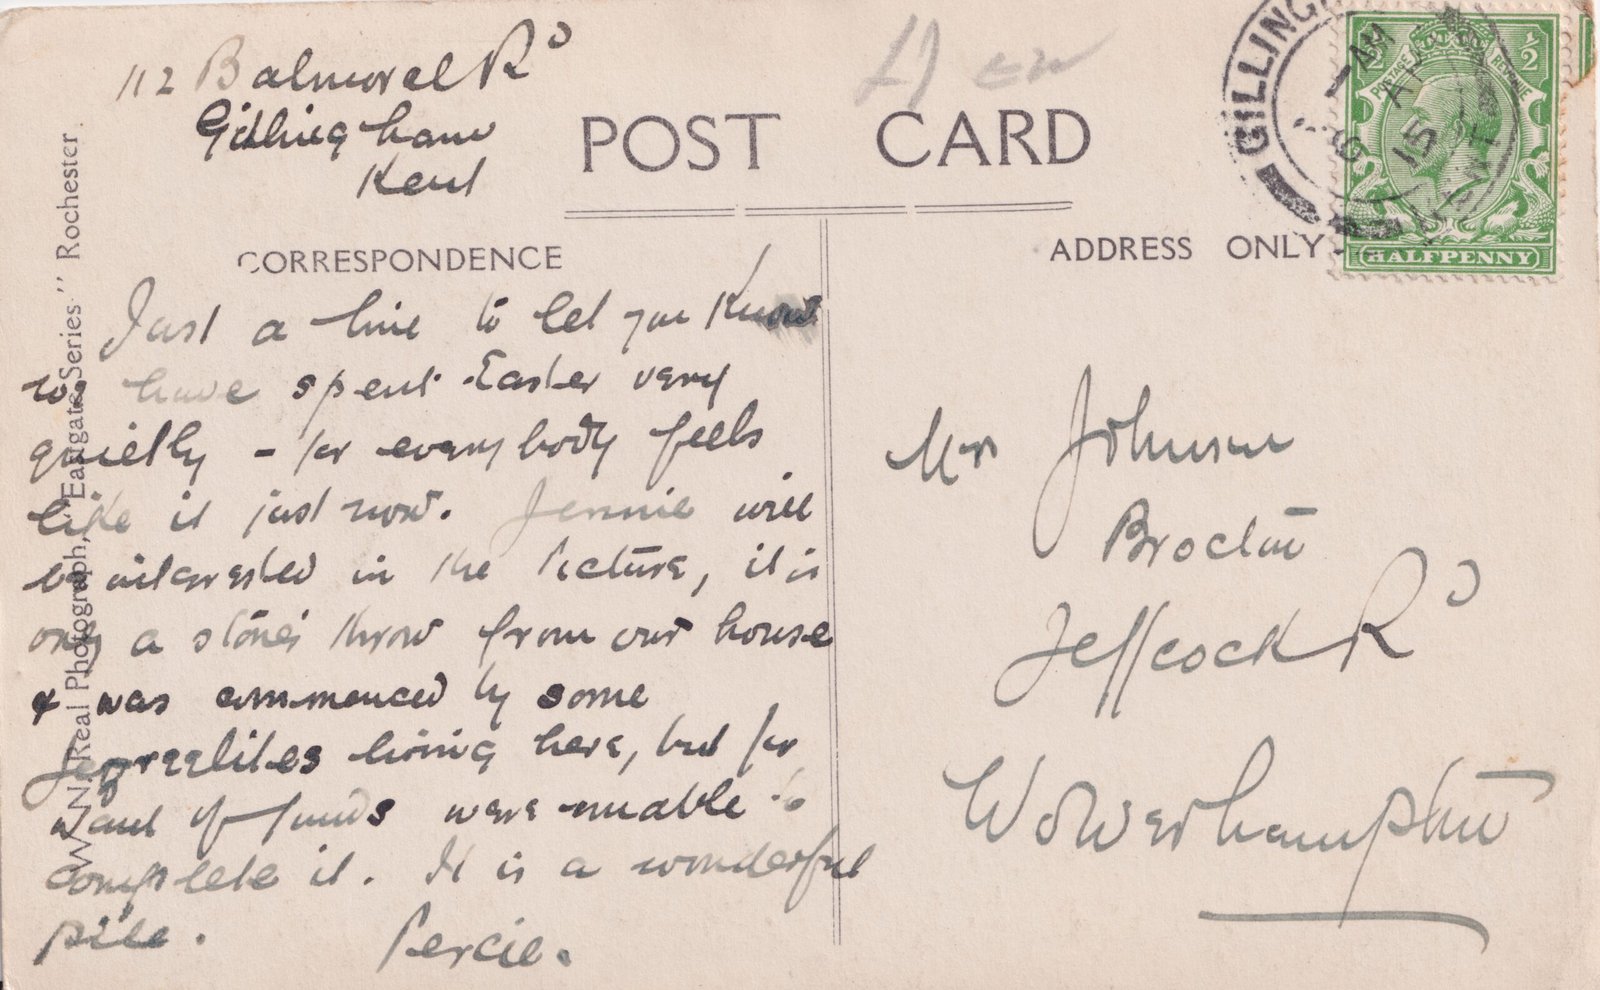 112 Balmoral Rd
Gillingham
Kent
POST CARD
CORRESPONDENCE
Just a line to let you know
we have spent Easter very
quietly - for everybody feels
like it just now. Jennie will
be interested in the Picture, it is
only a stone's throw from our house
& was commenced by some
Jezreelites living here, but for
want of funds were unable to
complete it. It is a wonderful
pile.
Percie.
ADDRESS ONLY
Mrs Johnson
Brocton
Jeffcock Rd
Wolverhampton
GILLINGHAM
AM
AP
15
½ ½
POSTAGE REVENUE
HALFPENNY
W.N. Real Photograph, "Eastgate Series" Rochester